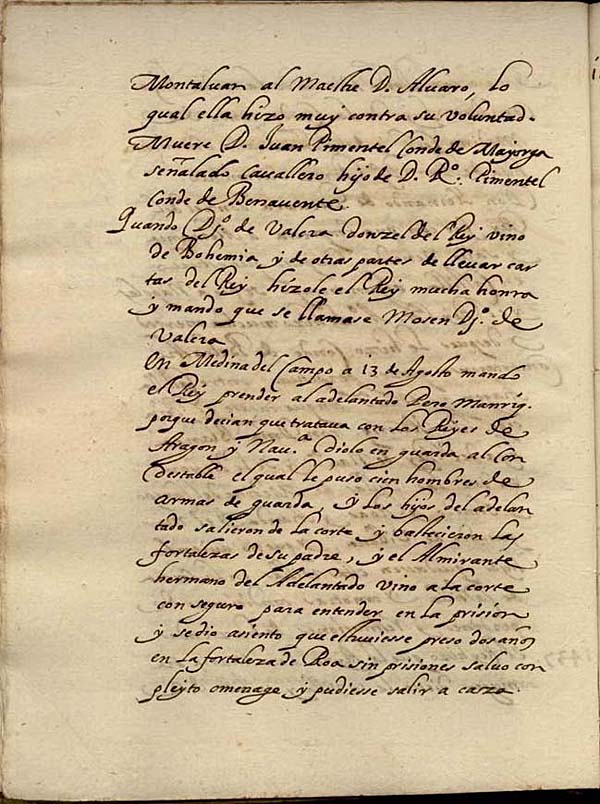 Montaluan al Maestre D. Aluaro, lo
qual ella hizo muy contra su voluntad.
Muere D. Juan Pimentel Conde de Mayorga
señalado cavallero hijo de D. Rº. Pimentel
Conde de Benavente.
Quando Djº. de Valera donzel del Rey vino
de Bohemia y de otras partes de lleuar car
tas del Rey hizole el Rey mucha honra
y mando que se llamase Mosen Djº. de
Valera
En Medina del Campo a 13 de Agosto mando
el Rey prender al adelantado Pero Manriq.
porque decian que tratava con los Reyes de
Aragon y Nau.ª diolo en guarda al Con
destable el qual le puso cien hombres de
armas de guarda, y los hijos del adelan
tado salieron de la corte y bastecieron las
fortalezas de su padre, y el Almirante
hermano del Adelantado vino a la corte
con seguro para entender en la prision
y se dio asiento que estuuiesse preso dos años
en la fortaleza de Roa sin prisiones salvo con
pleyto omenage y pudiesse salir a casza.